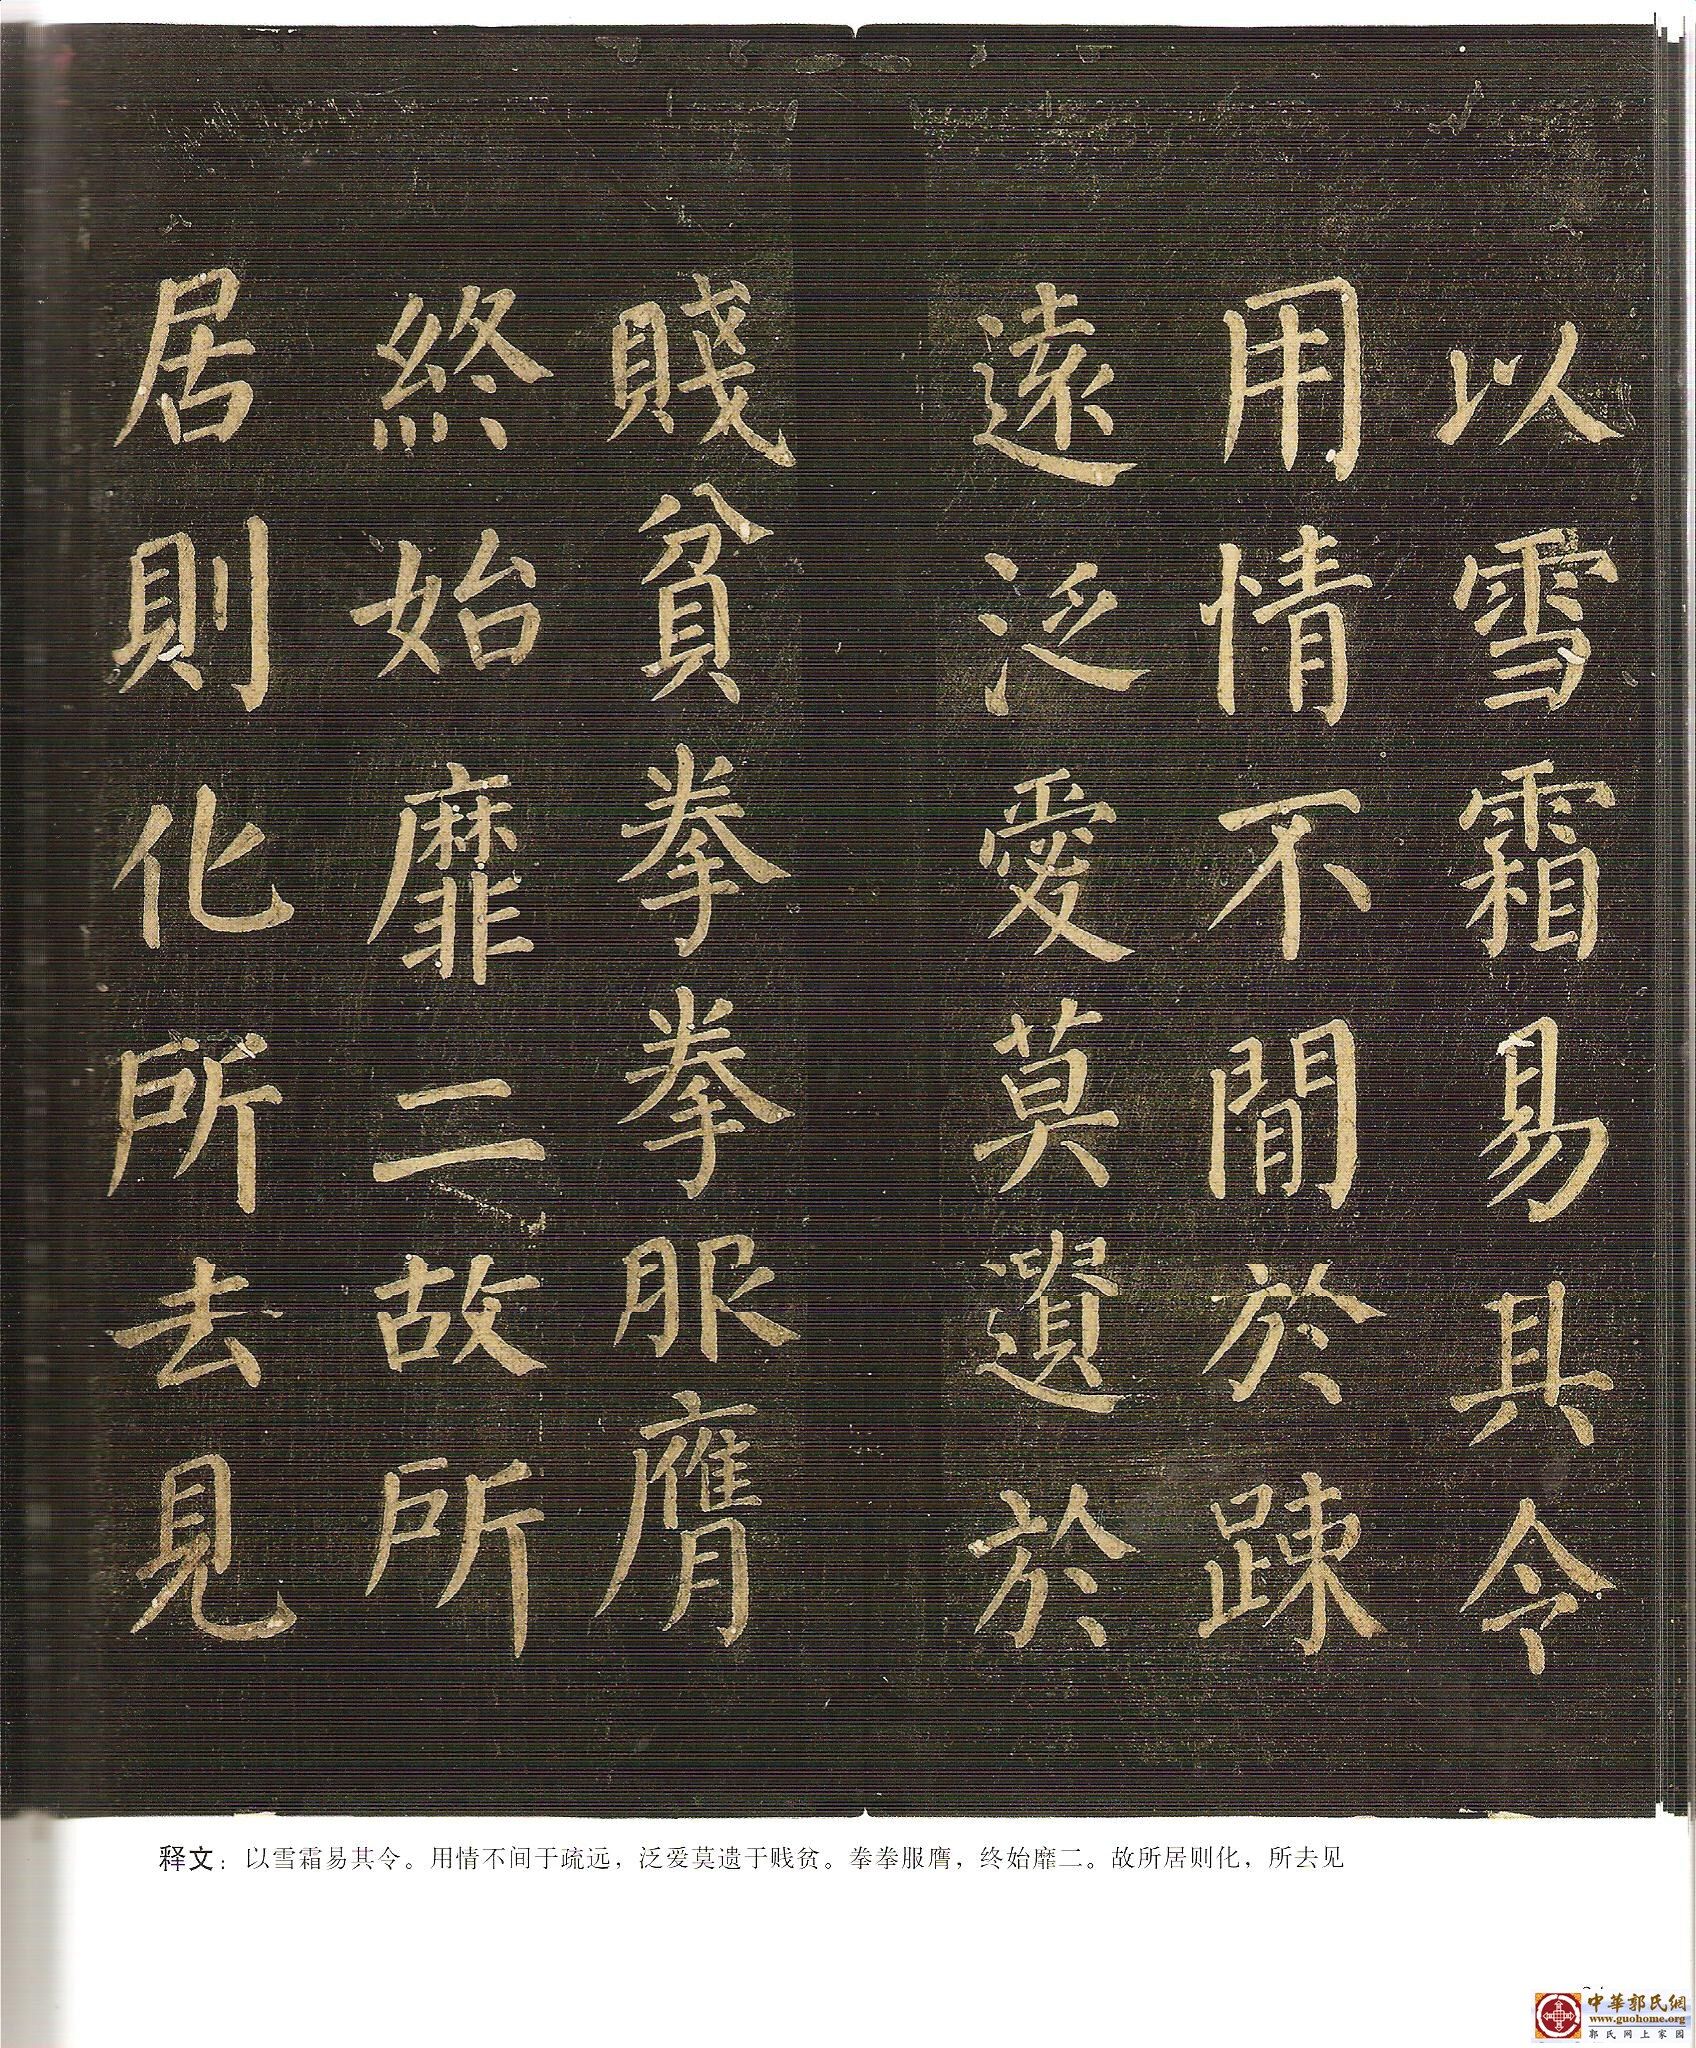 以雪霜易其令
用情不間於踈
遠泛愛莫遺於
賤貧拳拳服膺
終始靡二故所
居則化所去見
释文：以雪霜易其令。用情不间于疏远，泛爱莫遗于贱贫。拳拳服膺，终始靡二。故所居则化，所去见
中華郭氏網
www.guohome.org
郭氏网上家园